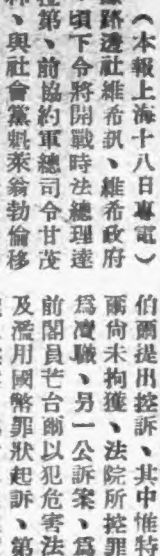 （本報上海十八日專電）
路透社維希訊、維希政府
頃下令將開戰時法總理達
第、前協約軍總司令甘茂
、與社會黨魁萊翁勃倫移
伯爾提出控訴、其中惟特
爾尚未拘獲、法院所控罪
爲凟職、另一公訴案、爲
前閣員芒台爾以犯危害法
及濫用國幣罪狀起訴、第